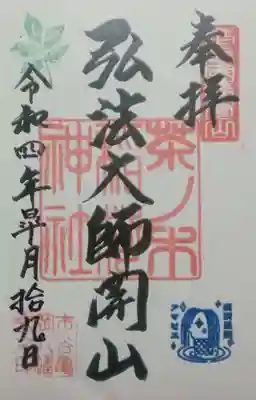 奉拝
弘法大師開山
茶ノ木
稲荷
神社
令和四年皐月拾九日